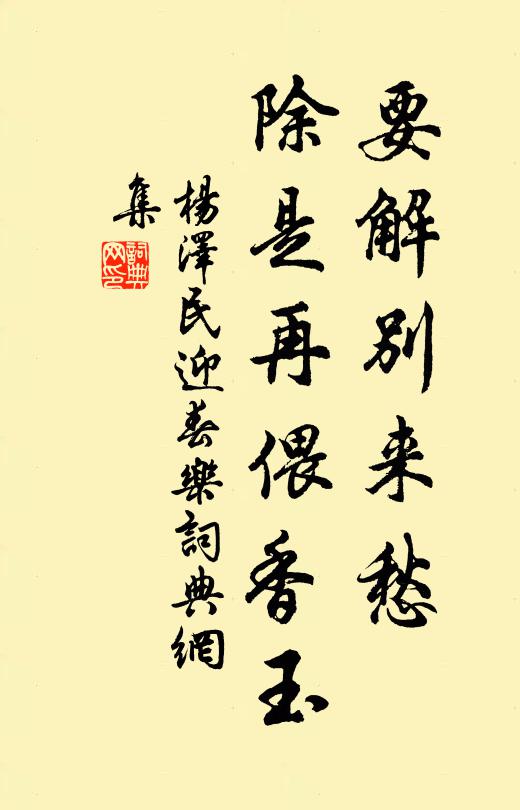 要解别来愁
除是再偎香玉
楊澤民迎春樂詞典網
集
詞典
网印